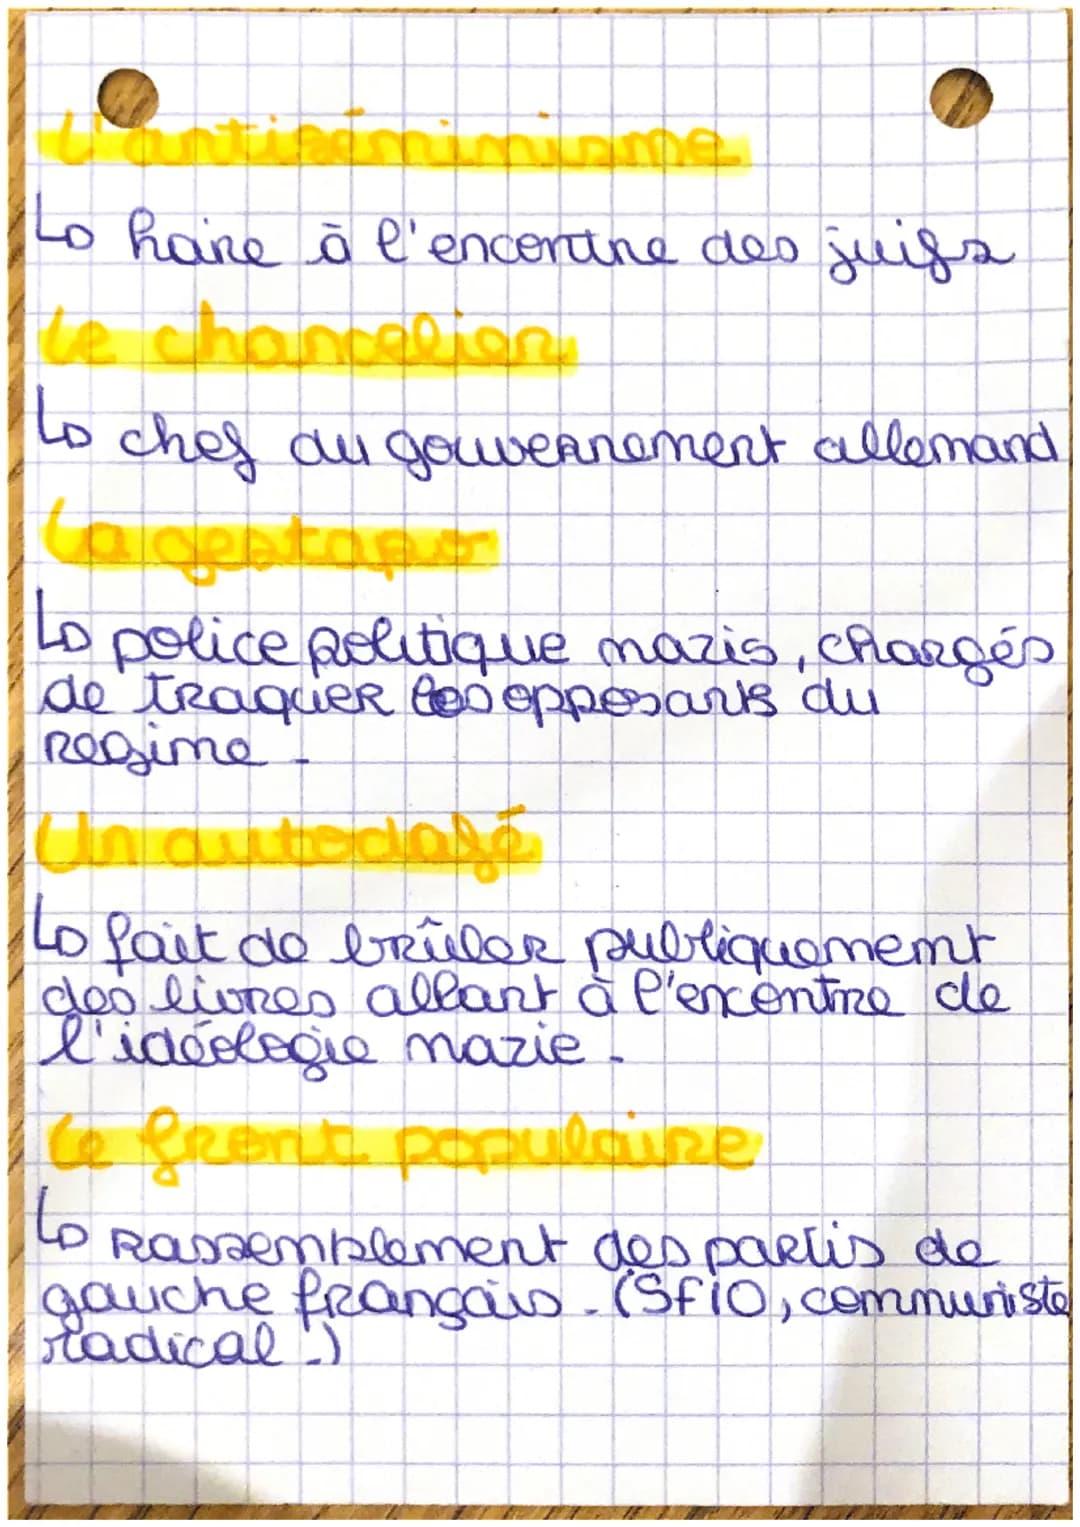 L'antiséminisme
↳ haine à l'encontre des juifs
Le chancelier
↳ chef du gouvernement allemand
La gestapo
↳ police politique nazis, chargés
de traquer les opposants du
regime.
Un autodafé
↳ fait de brûler publiquement
des livres allant à l'encontre de
l'idéologie nazie.
Le front populaire
↳ rassemblement des partis de
gauche français. (SfiO, communiste
radical.)